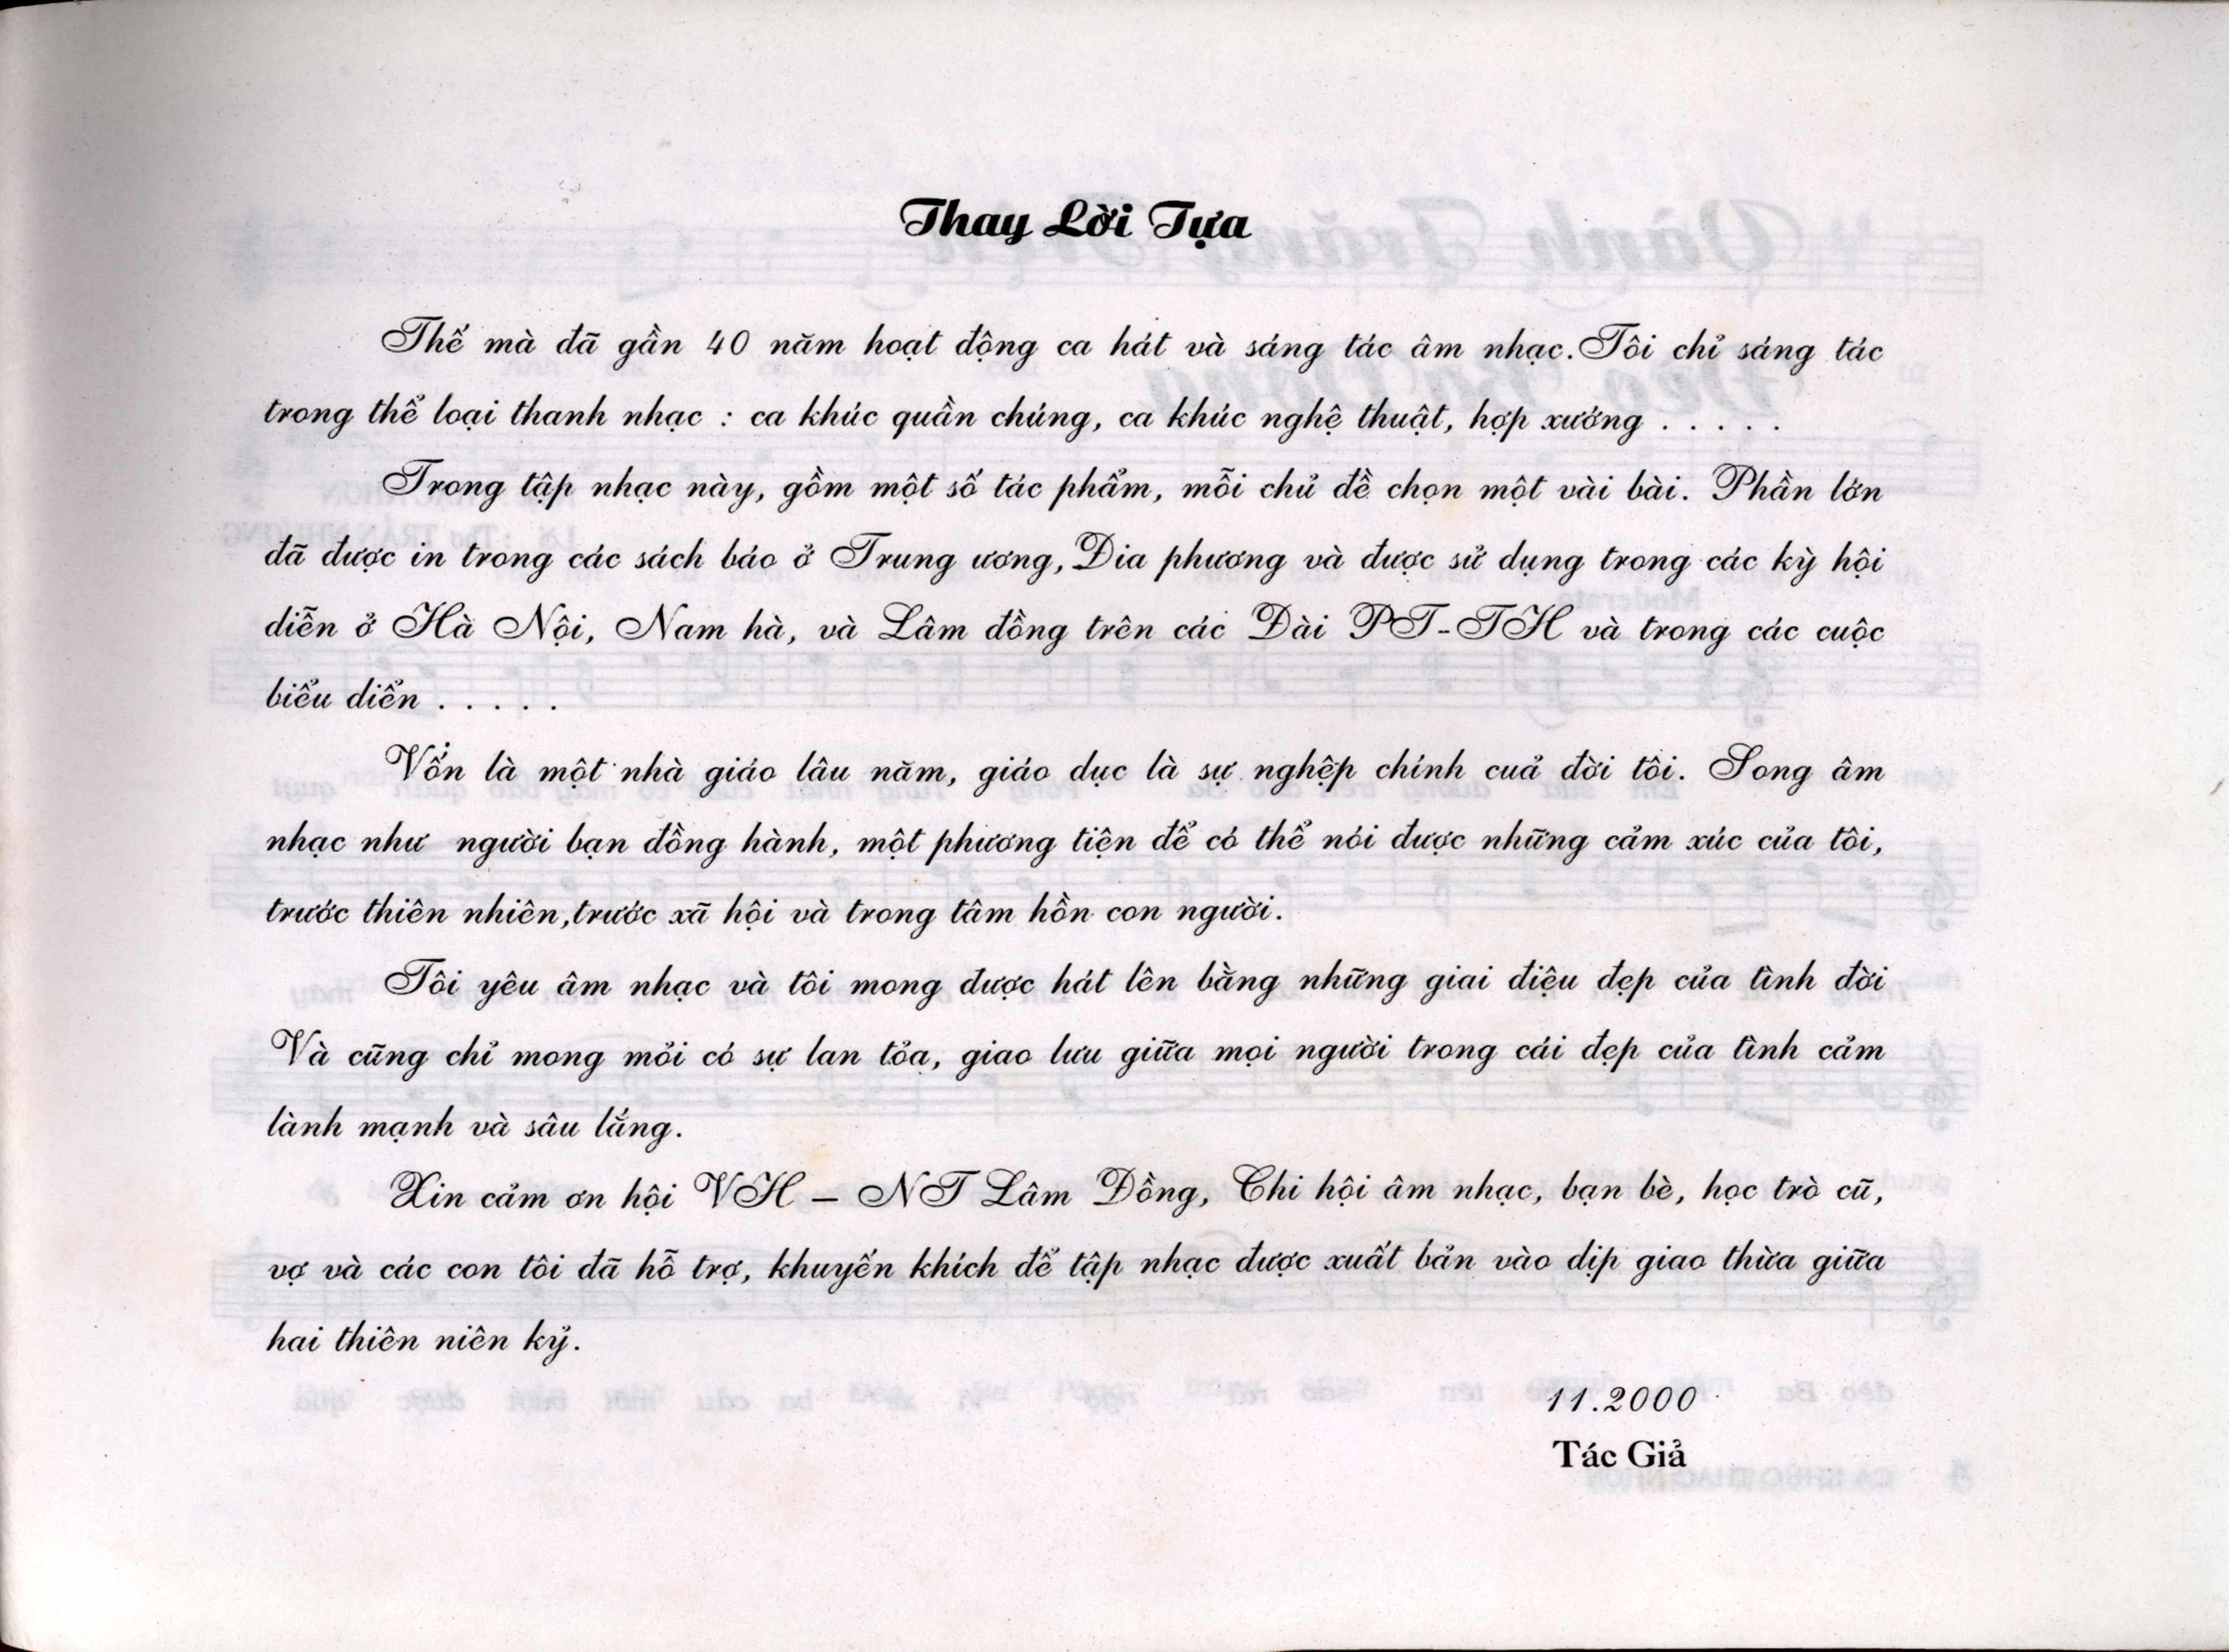 Thay Lời Tựa
Thế mà đã gần 40 năm hoạt động ca hát và sáng tác âm nhạc. Tôi chỉ sáng tác
trong thể loại thanh nhạc : ca khúc quần chúng, ca khúc nghệ thuật, hợp xướng . . . . .
Trong tập nhạc này, gồm một số tác phẩm, mỗi chủ đề chọn một vài bài. Phần lớn
đã được in trong các sách báo ở Trung ương, Đia phương và được sử dụng trong các kỳ hội
diễn ở Hà Nội, Nam hà, và Lâm đồng trên các Đài PT-TH và trong các cuộc
biểu diển . . . . .
Vốn là một nhà giáo lâu năm, giáo dục là sự nghệp chính cuả đời tôi. Song âm
nhạc như người bạn đồng hành, một phương tiện để có thể nói được những cảm xúc của tôi,
trước thiên nhiên,trước xã hội và trong tâm hồn con người.
Tôi yêu âm nhạc và tôi mong được hát lên bằng những giai điệu đẹp của tình đời
Và cũng chỉ mong mỏi có sự lan tỏa, giao lưu giữa mọi người trong cái đẹp của tình cảm
lành mạnh và sâu lắng.
Xin cảm ơn hội VH – NT Lâm Đồng, Chi hội âm nhạc, bạn bè, học trò cũ,
vợ và các con tôi đã hỗ trợ, khuyến khích để tập nhạc được xuất bản vào dịp giao thừa giữa
hai thiên niên kỷ.
11.2000
Tác Giả